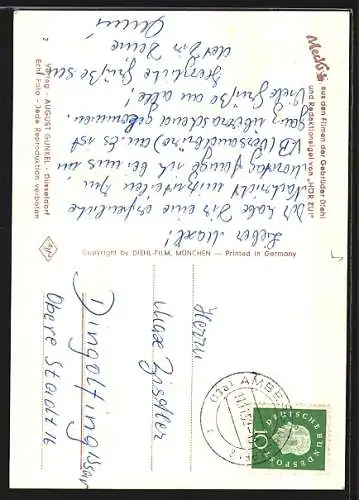 Mecki
aus den Filmen der Gebrüder Diehl
und Redaktionsigel von "HÖR ZU!"
Lieber Maxl!
Ich habe Dir eine erfreuliche
Nachricht mitzuteilen. Am
Montag fängt sich bei uns im
KB (Versandbüro) an. Es ist
ganz überraschend gekommen.
Viele Grüße an alle,
herzliche Grüße sen-
det Dir Deine
Verlag - AUGUST GUNKEL - Düsseldorf
Echt Foto - Jede Reproduktion verboten
2
Copyright by DIEHL-FILM, MÜNCHEN - Printed in Germany
Herrn
Max Zistler
Dingolfing/Isar
Obere Stadt 76
(13a) AMBERG
DEUTSCHE BUNDESPOST
10